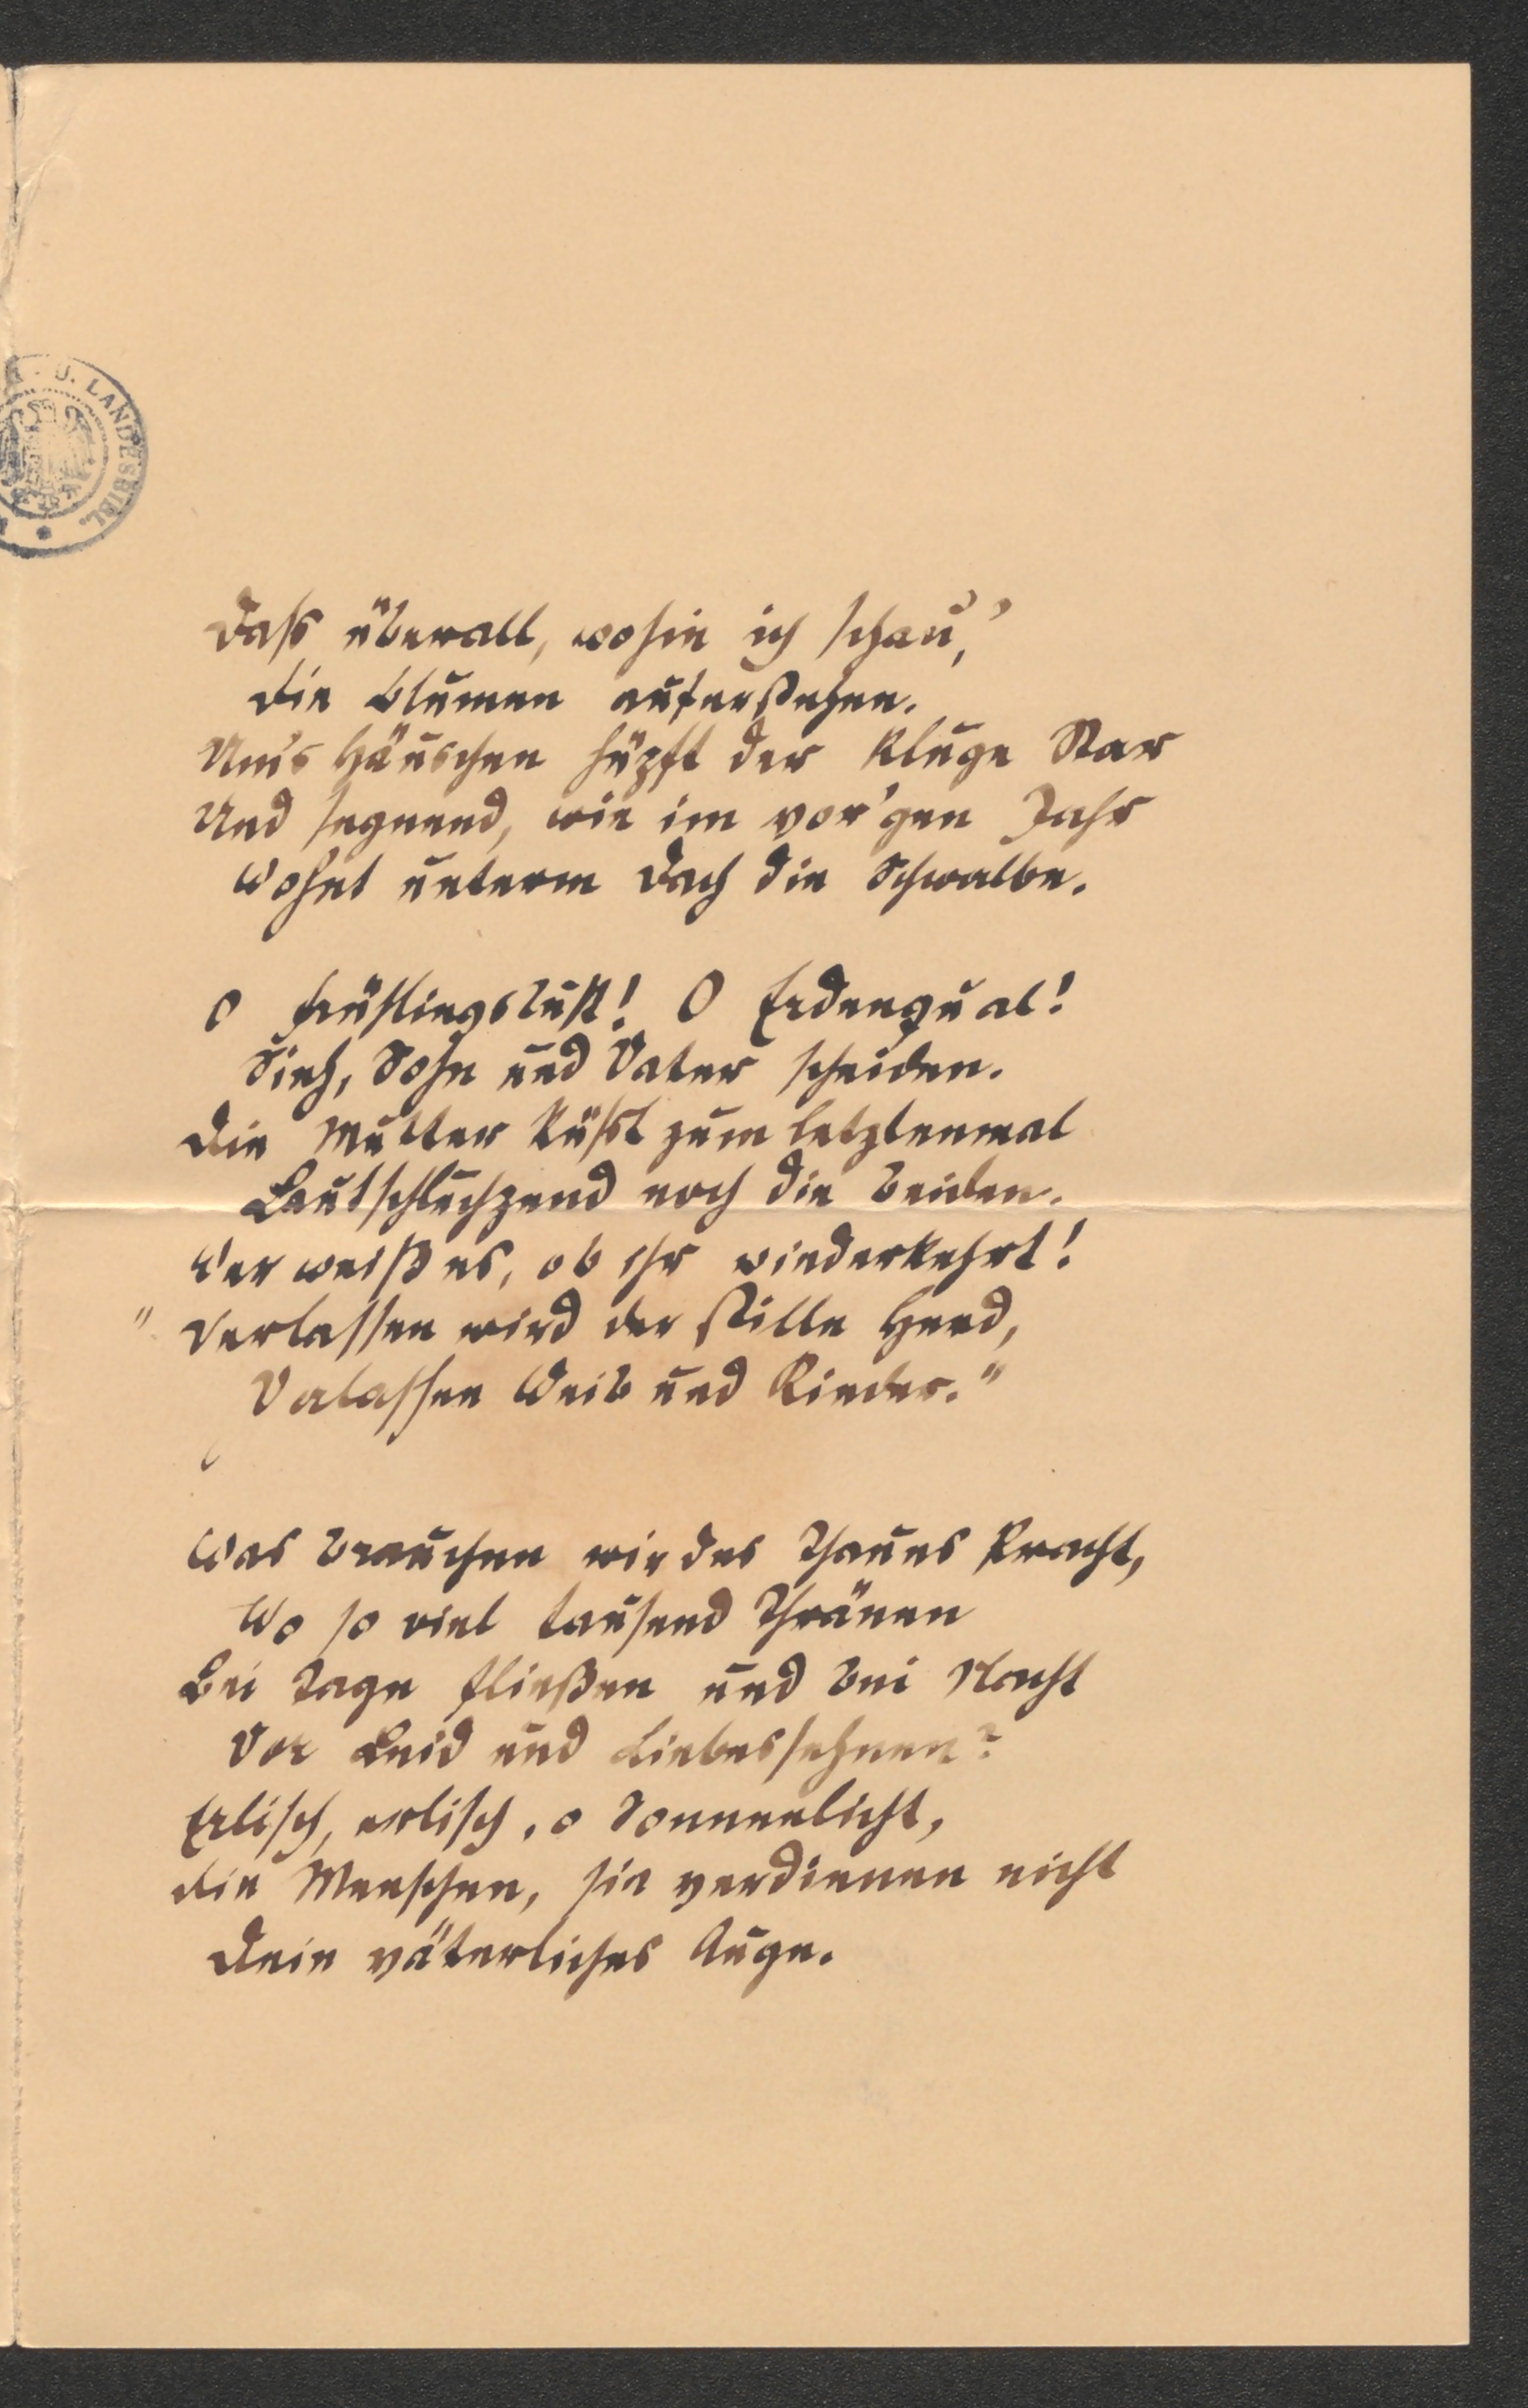 U. LANDESBIBL.
Daß überall, wohin ich schau',
Die Blumen auferstehen.
Um's Häuschen hüpft der kluge Star
Und segnend, wie im vor'gen Jahr
Wohnt unterm Dach die Schwalbe.
O Frühlingslust! O Erdenqual!
Sieh, Sohn und Vater scheiden.
Die Mutter küßt zum letztenmal
Lautschluchzend noch die Beiden.
Wer weiß es, ob ihr wiederkehrt!
"Verlassen wird der stille Herd,
Verlassen Weib und Kinder."
Was brauchen wir des Thaues Pracht,
Wo so viel tausend Thränen
Bei Tage fließen und bei Nacht
Vor Leid und Liebessehnen?
Erlisch, erlisch, o Sonnenlicht,
Die Menschen, sie verdienen nicht
Dein väterliches Auge.